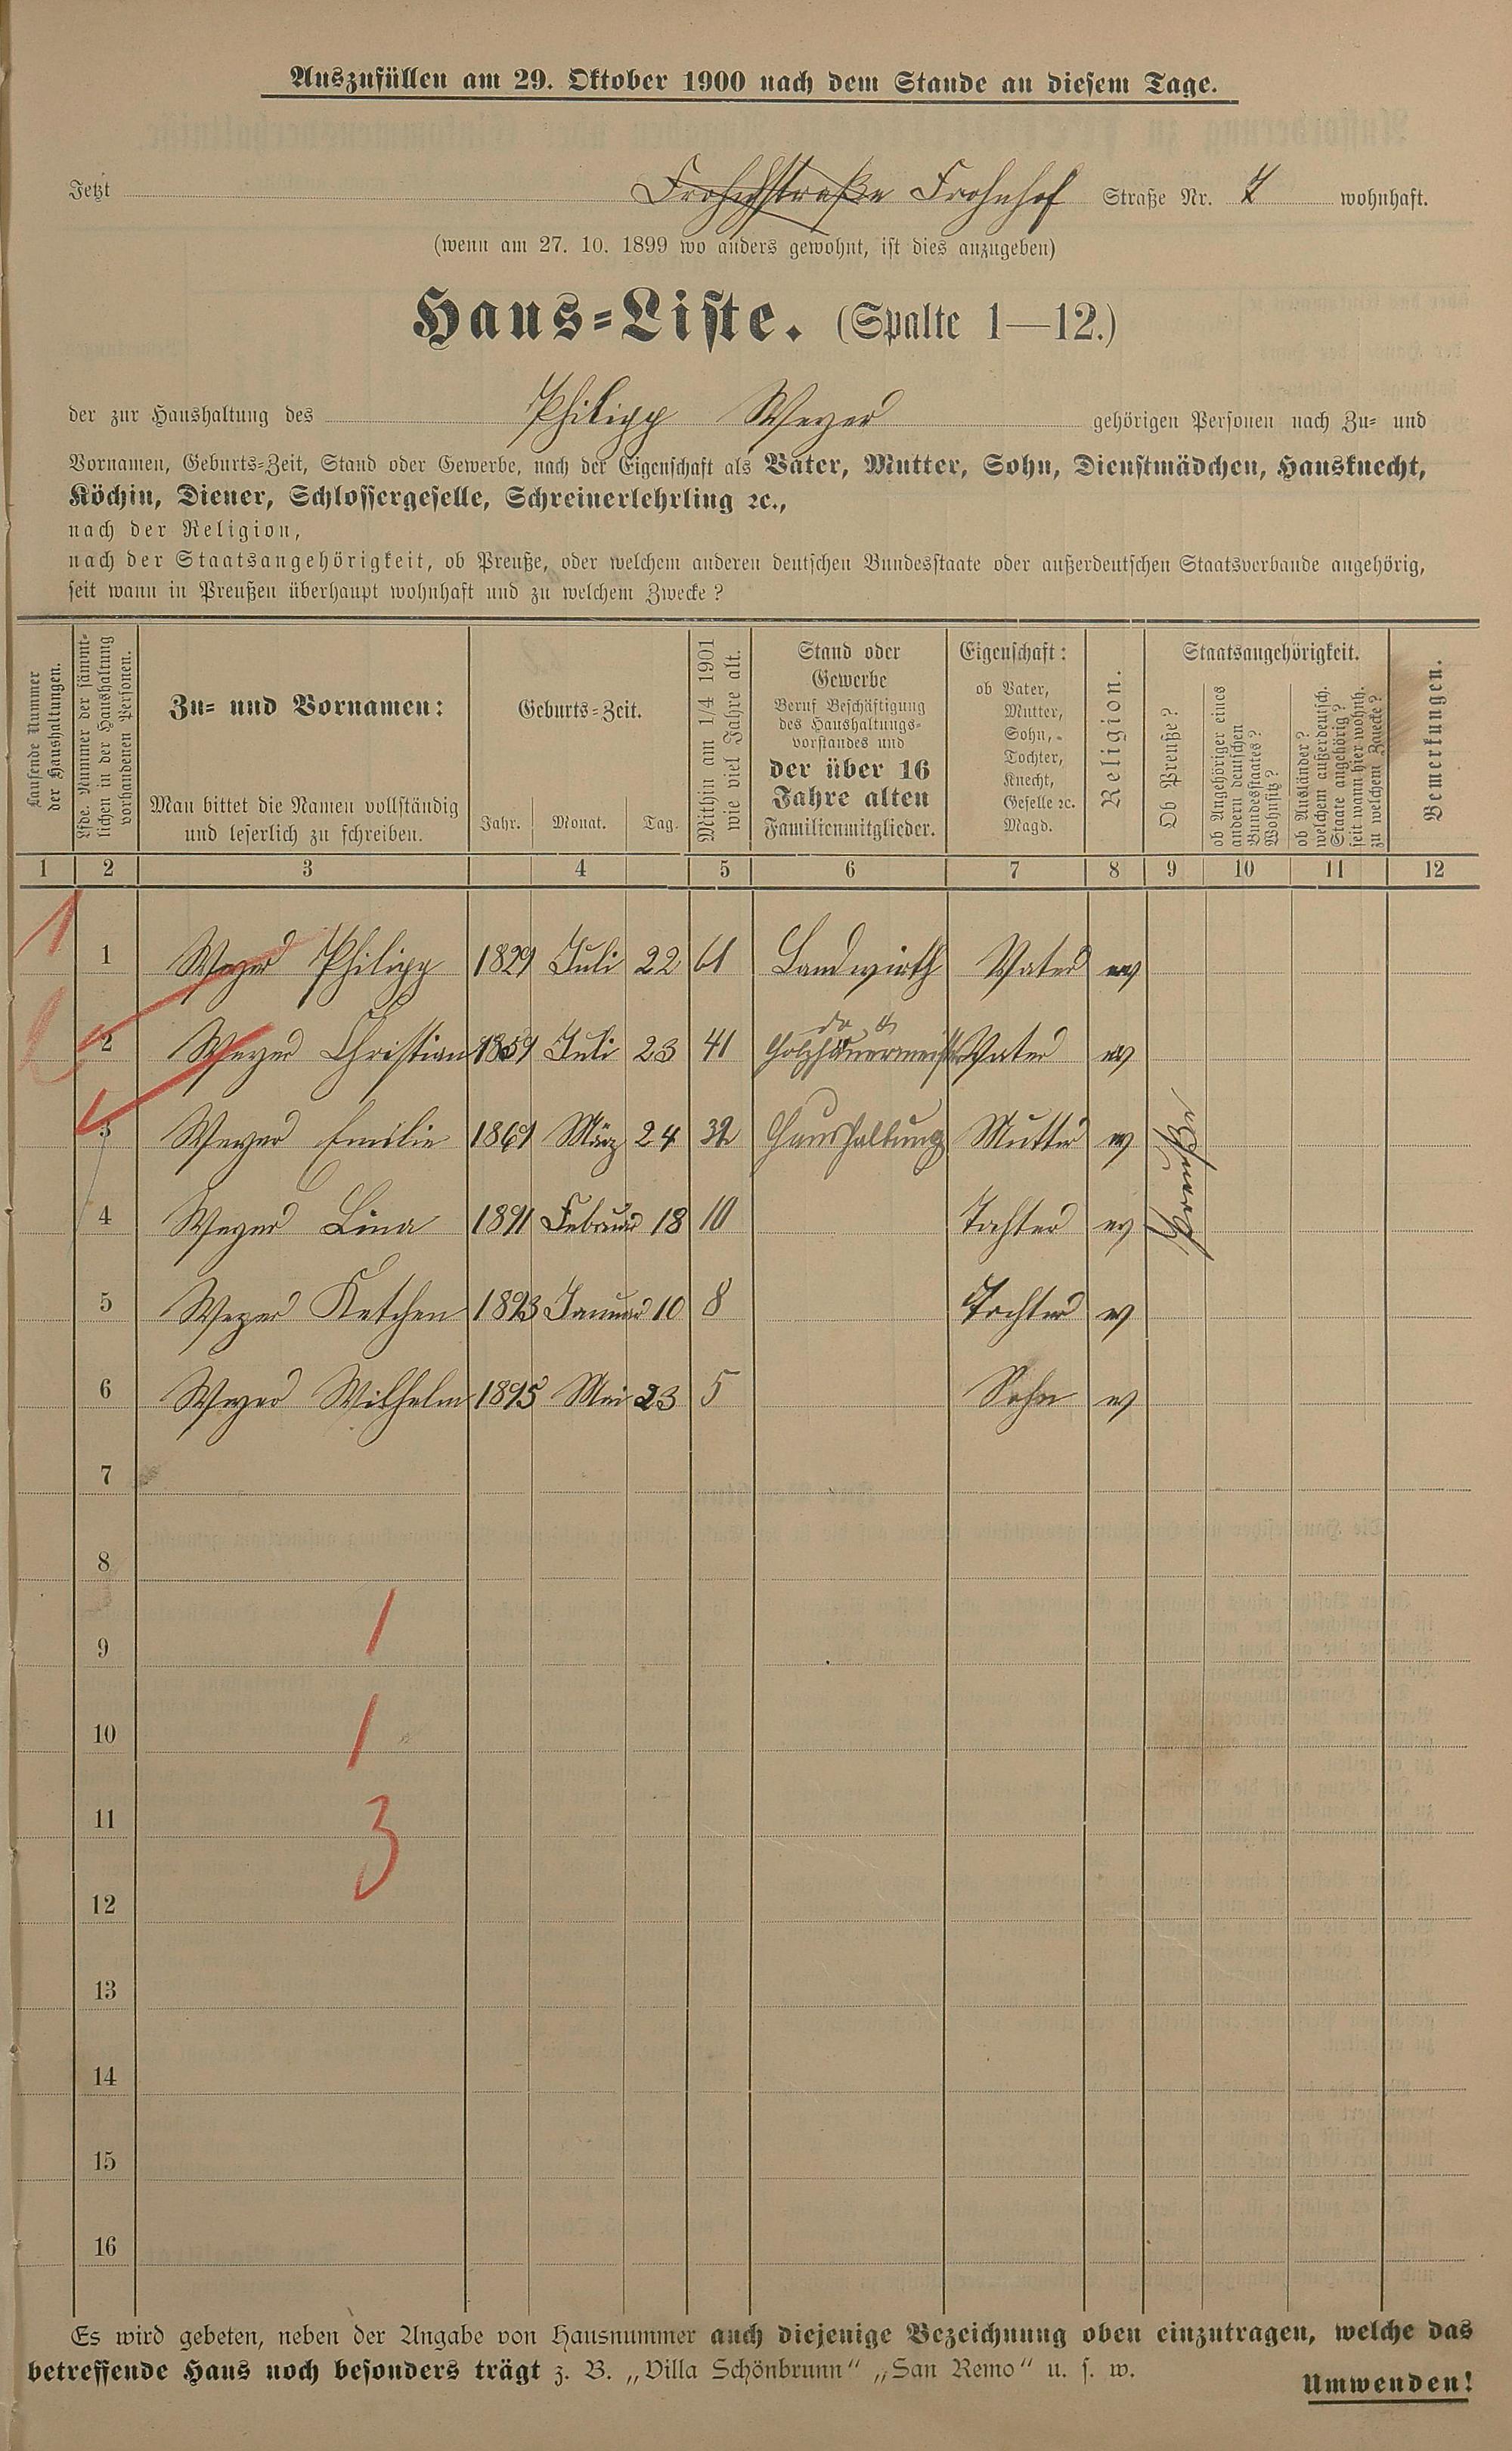 Auszufüllen am 29. Oktober 1900 nach dem Stande an diesem Tage.
Jetzt Frohnhof Straße Nr. 7 wohnhaft.
(wenn am 27. 10. 1899 wo anders gewohnt, ist dies anzugeben)
Haus-Liste. (Spalte 1—12.)
der zur Haushaltung des Philipp Weyer gehörigen Personen nach Zu- und
Vornamen, Geburts-Zeit, Stand oder Gewerbe, nach der Eigenschaft als Vater, Mutter, Sohn, Dienstmädchen, Hausknecht,
Köchin, Diener, Schlossergeselle, Schreinerlehrling ꝛc.,
nach der Religion,
nach der Staatsangehörigkeit, ob Preuße, oder welchem anderen deutschen Bundesstaate oder außerdeutschen Staatsverbande angehörig,
seit wann in Preußen überhaupt wohnhaft und zu welchem Zwecke?
Laufende Nummer
der Haushaltungen.
Lfde. Nummer der sämmt-
lichen in der Haushaltung
vorhandenen Personen.
Zu- und Vornamen:
Man bittet die Namen vollständig
und leserlich zu schreiben.
Geburts-Zeit.
Jahr. Monat. Tag.
Mithin am 1/4 1901
wie viel Jahre alt.
Stand oder
Gewerbe
Beruf Beschäftigung
des Haushaltungs-
vorstandes und
der über 16
Jahre alten
Familienmitglieder.
Eigenschaft:
ob Vater,
Mutter,
Sohn,
Tochter,
Knecht,
Geselle ꝛc.
Magd.
Religion.
Staatsangehörigkeit.
Ob Preuße?
ob Angehöriger eines
andern deutschen
Bundesstaates?
Wohnsitz?
ob Ausländer?
welchem außerdeutsch.
Staate angehörig?
seit wann hier wohnh.
zu welchem Zwecke?
Bemerkungen.
1 2 3 4 5 6 7 8 9 10 11 12
1
1 Weyer Philipp 1829 Juli 22 61 Landwirth Vater ev
2 Weyer Christian 1859 Juli 23 41 Holzhauermeister Vater ev
3 Weyer Emilie 1869 März 24 32 Haushaltung Mutter ev
4 Weyer Lina 1891 Februar 18 10 Tochter ev
5 Weyer Ketchen 1893 Januar 10 8 Tochter ev
6 Weyer Wilhelm 1895 Mai 23 5 Sohn ev
7
8
9
1
10
1
11
3
12
13
14
15
16
Es wird gebeten, neben der Angabe von Hausnummer auch diejenige Bezeichnung oben einzutragen, welche das
betreffende Haus noch besonders trägt z. B. „Villa Schönbrunn“ „San Remo“ u. s. w.
Umwenden!